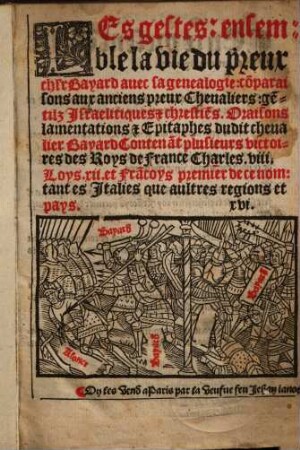 LEs gestes: ensem:
ble la vie du preux
chlr Bayard avec sa genealogie: cōparai
sons aux anciens preux Chevaliers: gē-
tilz Israelitiques & chrestiēs. Oraisons
lamentations & Epitaphes dudit cheva
lier Bayard Contenāt plusieurs victoi
res des Roys de France Charles. viii.
Loys. xii. et Frācoys premier de ce nom:
tant es Italies que aultres regions et
pays. xvi.
Bayard
Bayard
Bayard
On les vend a Paris par la Veufue feu